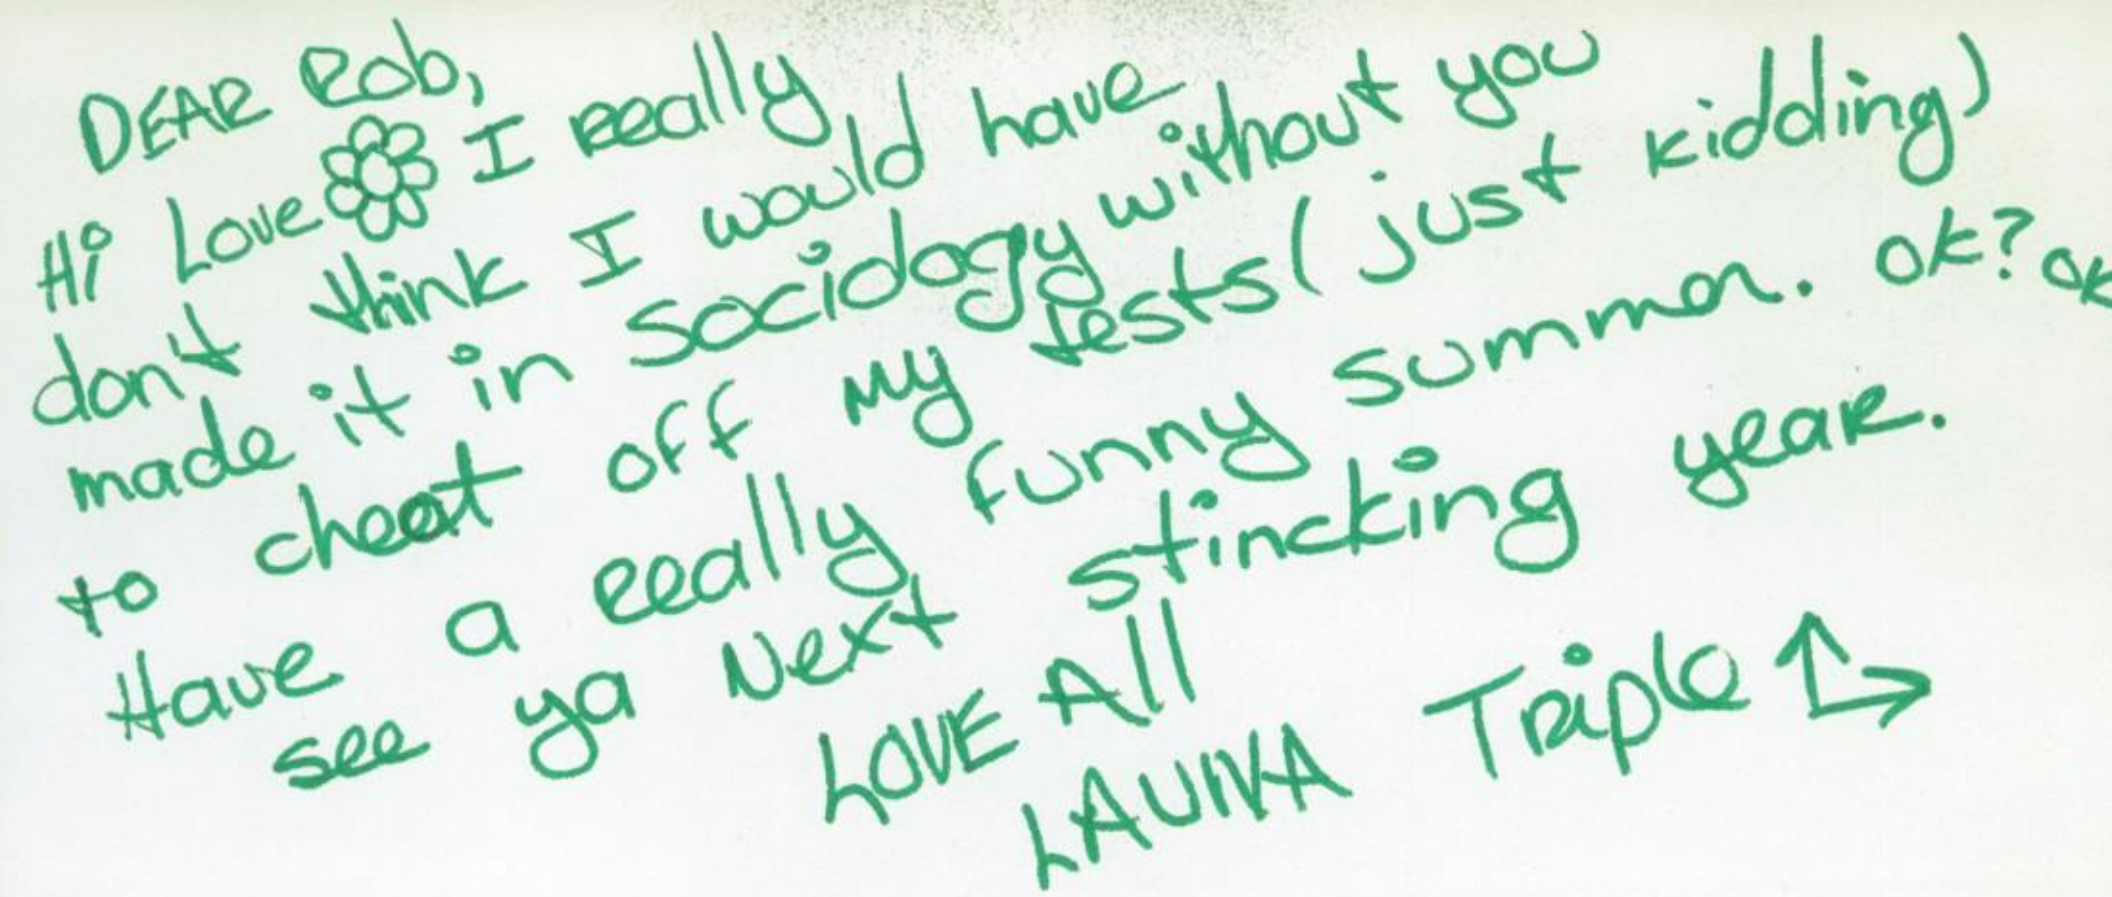 DEAR Rob,
Hi Love I really
don't think I would have
made it in sociology without you
to cheat off my tests (just kidding)
Have a really funny summer. ok? ok
see ya Next stincking year.
LOVE All
LAUINA Triple